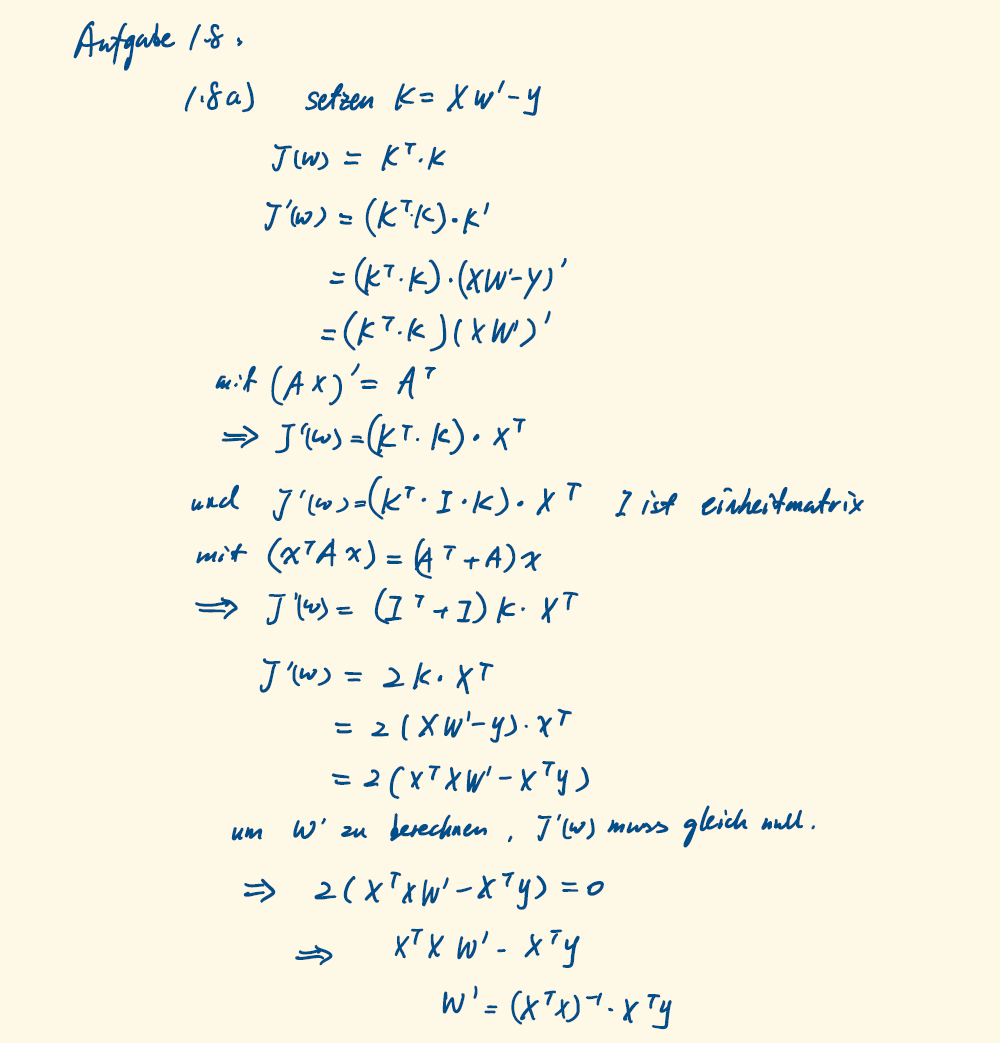 Aufgabe 1.8.
1.8a) setzen K = XW' - y
J(w) = K^T · K
J'(w) = (K^T·K)·K'
= (K^T·K)·(XW'-Y)'
= (K^T·K)(XW')'
mit (AX)' = A^T
⇒ J'(w) = (K^T·K)·X^T
und J'(w) = (K^T·I·K)·X^T I ist einheitmatrix
mit (x^T A x) = (A^T + A)x
⇒ J'(w) = (I^T + I)K·X^T
J'(w) = 2K·X^T
= 2(XW'-y)·X^T
= 2(X^T XW' - X^T y)
um W' zu berechnen, J'(w) muss gleich null.
⇒ 2(X^T XW' - X^T y) = 0
⇒ X^T X W' - X^T y
W' = (X^T X)^-1 · X^T y